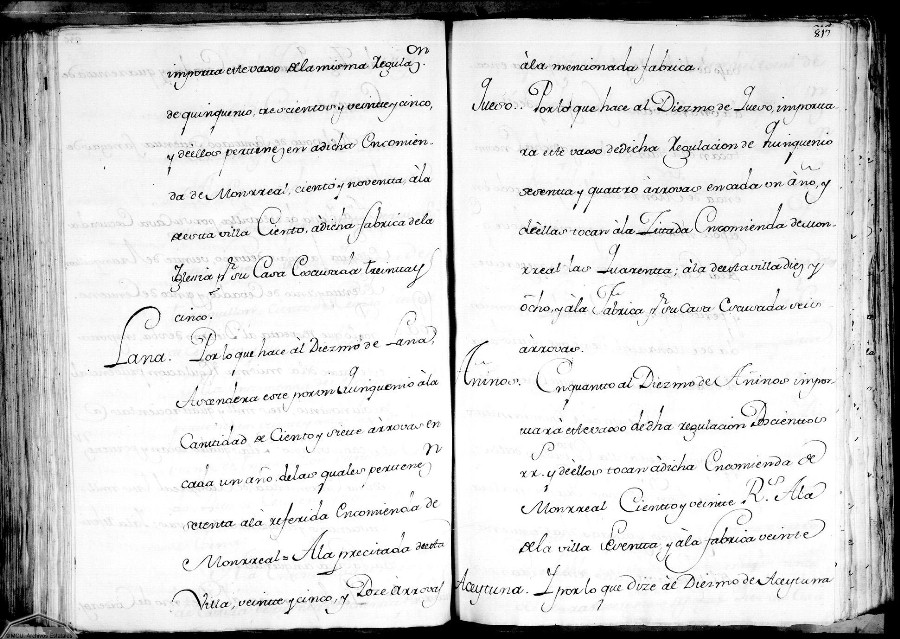 importa este vaxo de la misma Regulaz.on
de quinquenio, trescientos y veinte y cinco,
y de ellos pertenezen a dicha Encomien-
da de Monrreal, ciento y noventa, à la
de esta villa Ciento, a dicha fabrica de la
Yglesia y su Casa Escusada treinta y
cinco.
Lana. Por lo que hace àl Diezmo de Lana,
Ascendera este por un Quinquenio à la
Cantidad de Ciento y siete àrrovas en
cada un año de las quales pertenezen
setenta a la referida Encomienda de
Monrreal = A la precitada de esta
Villa, veinte y cinco, y Doze àrrovas
817
à la mencionada fabrica.
Quesos. Por lo que hace al Diezmo de Queso, importa-
ra este vaxo de dicha Regulacion de Quinquenio
sesenta y quattro àrrovas en cada un año, y
de ellas tocan à la Zitada Encomienda de Mon-
rreal las Quarenta; à la de esta villa diez y
ôcho, y à la Fabrica y su Casa Escusada seis
àrrovas.
Añinos. En quanto al Diezmo de Añinos impor-
tarà este vaxo de dha regulación Doscientos
rr.s y de ellos tocan à dicha Encomienda de
Monrreal Ciento y veinte R.s A la
de la villa Sesenta, y à la fabrica veinte
Aceytuna. Y por lo que dize àl Diezmo de Aceytuna